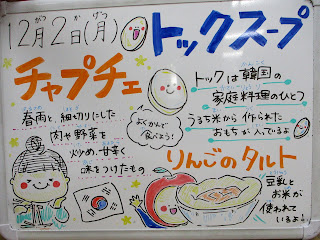 12月2日(月)
がつ か げつ
トックスープ
チャプチェ
春雨と、細切りにした
肉や野菜を
炒め、甘辛く
味をつけたもの
トックは韓国の
家庭料理のひとつ
うるち米から作られた
おもちが入ってるよ
よくかんで
食べよう!
りんごのタルト
豆乳と
お米が
使われて
いるよ!